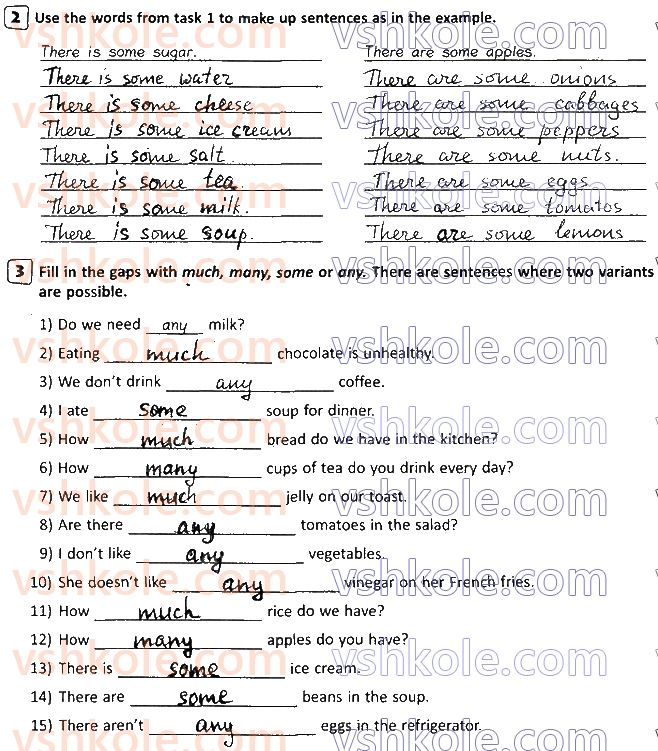 2 Use the words from task 1 to make up sentences as in the example.
There is some sugar. There are some apples.
There is some water There are some onions
There is some cheese There are some cabbages
There is some ice cream There are some peppers
There is some salt There are some nuts.
There is some tea. There are some eggs
There is some milk. There are some tomatos
There is some soup. There are some lemons
3 Fill in the gaps with much, many, some or any. There are sentences where two variants
are possible.
1) Do we need any milk?
2) Eating much chocolate is unhealthy.
3) We don't drink any coffee.
4) I ate some soup for dinner.
5) How much bread do we have in the kitchen?
6) How many cups of tea do you drink every day?
7) We like much jelly on our toast.
8) Are there any tomatoes in the salad?
9) I don't like any vegetables.
10) She doesn't like any vinegar on her French fries.
11) How much rice do we have?
12) How many apples do you have?
13) There is some ice cream.
14) There are some beans in the soup.
15) There aren't any eggs in the refrigerator.
vshkole.com